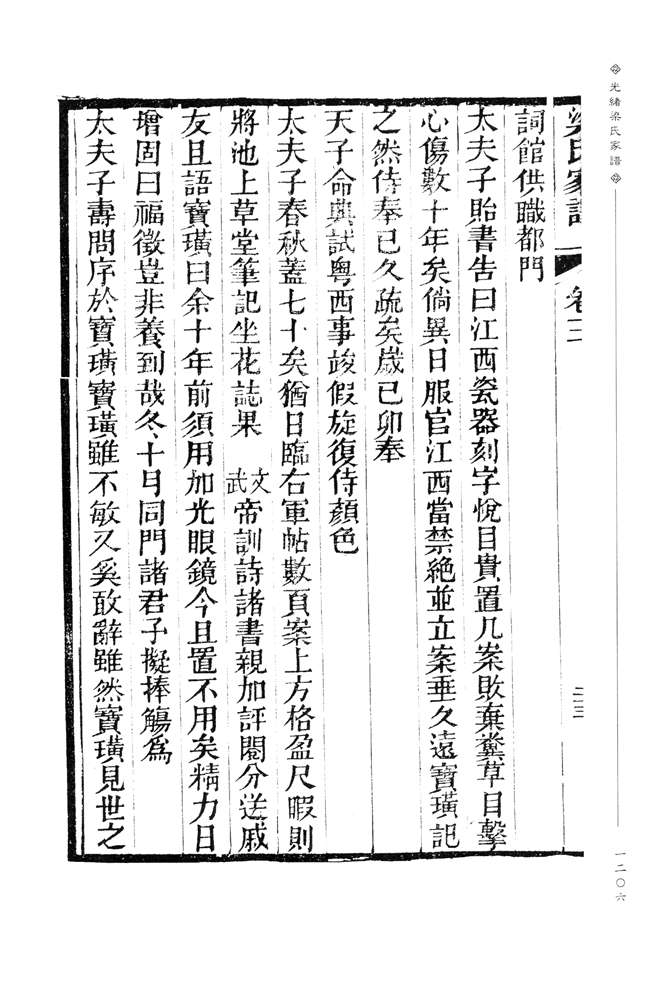 光緒梁氏家譜
一二〇六
梁氏家譜 卷二
二三
詞館供職都門
太夫子貽書告曰江西瓷器刻字悅目貴置几案敗棄糞草目擊
心傷數十年矣倘異日服官江西當禁絶並立案垂久遠寶璜記
之然侍奉已久疏矣歲己卯奉
天子命典試粤西事竣假旋復侍顏色
太夫子春秋蓋七十矣猶日臨右軍帖數頁案上方格盈尺暇則
將池上草堂筆記坐花誌果 文武帝訓詩諸書親加評閱分送戚
友且語寶璜曰余十年前須用加光眼鏡今且置不用矣精力日
增固曰福徵豈非養到哉冬十月同門諸君子擬捧觴爲
太夫子壽問序於寶璜寶璜雖不敏又奚敢辭雖然寶璜見世之